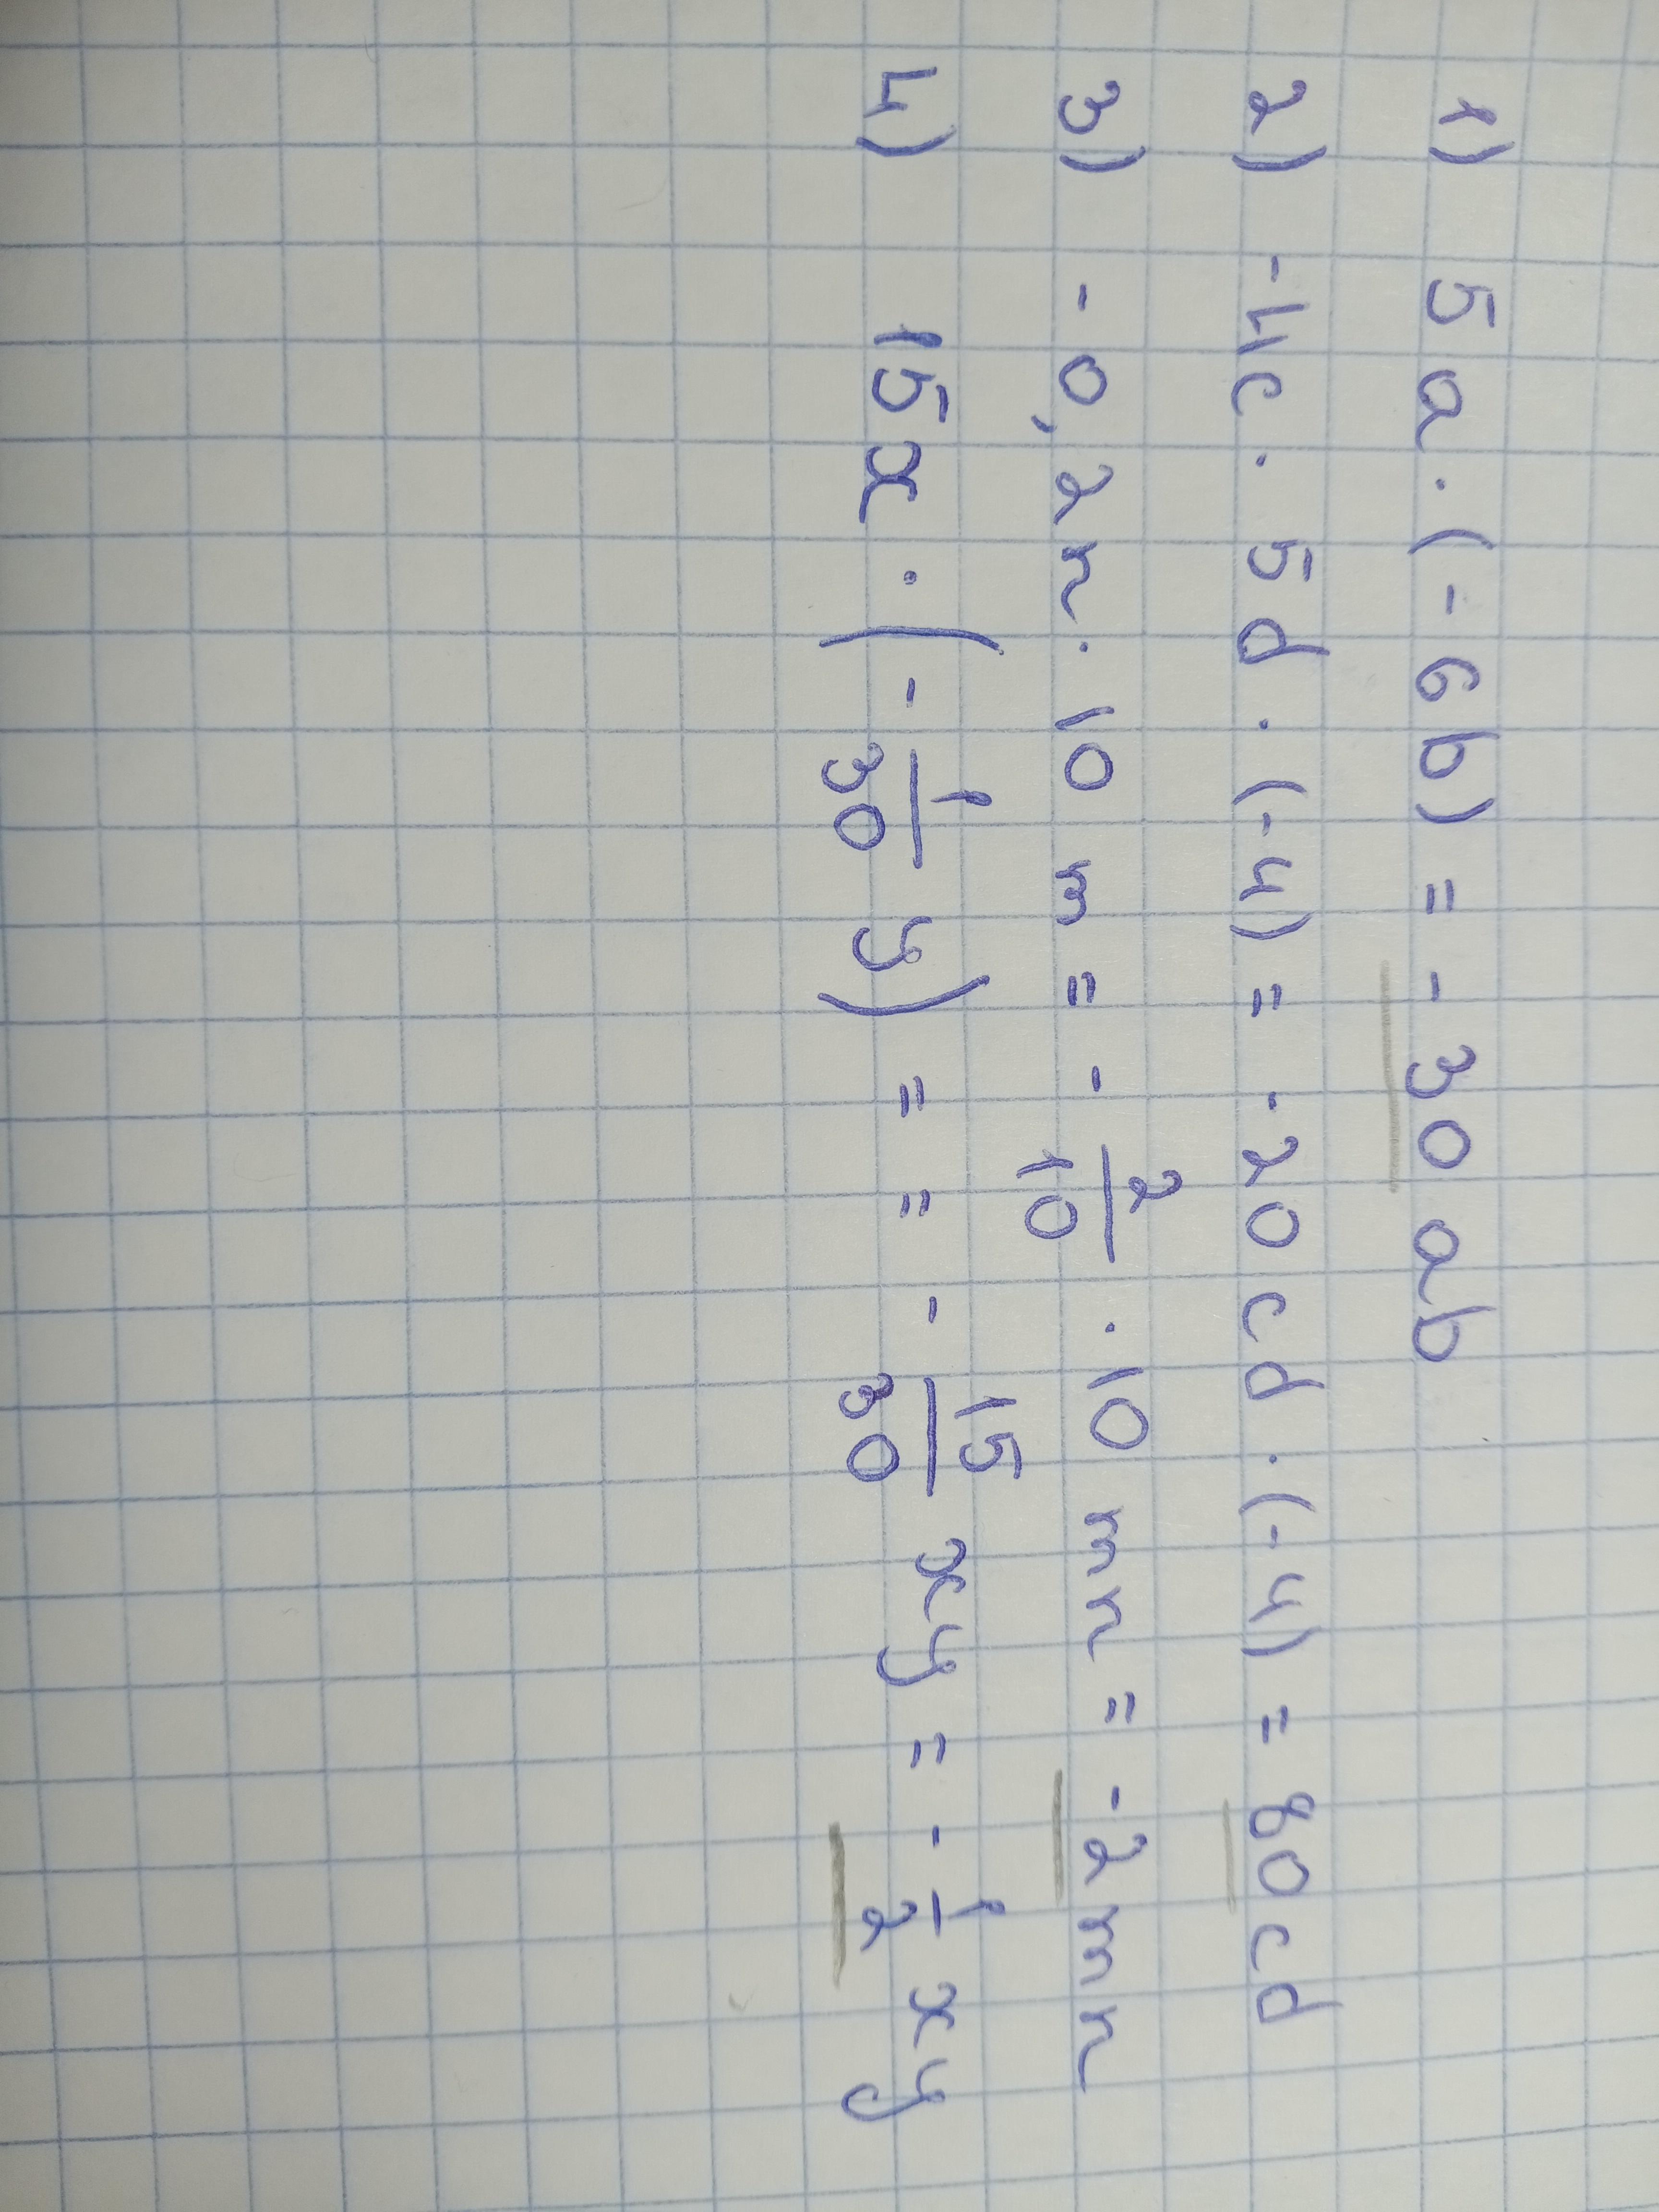 1) 5a · (-6b) = -30ab
2) -4c · 5d · (-4) = -20cd · (-4) = 80cd
3) -0,2n · 10m = - 2/10 · 10mn = -2mn
4) 15x · (- 1/30 y) = = - 15/30 xy = - 1/2 xy